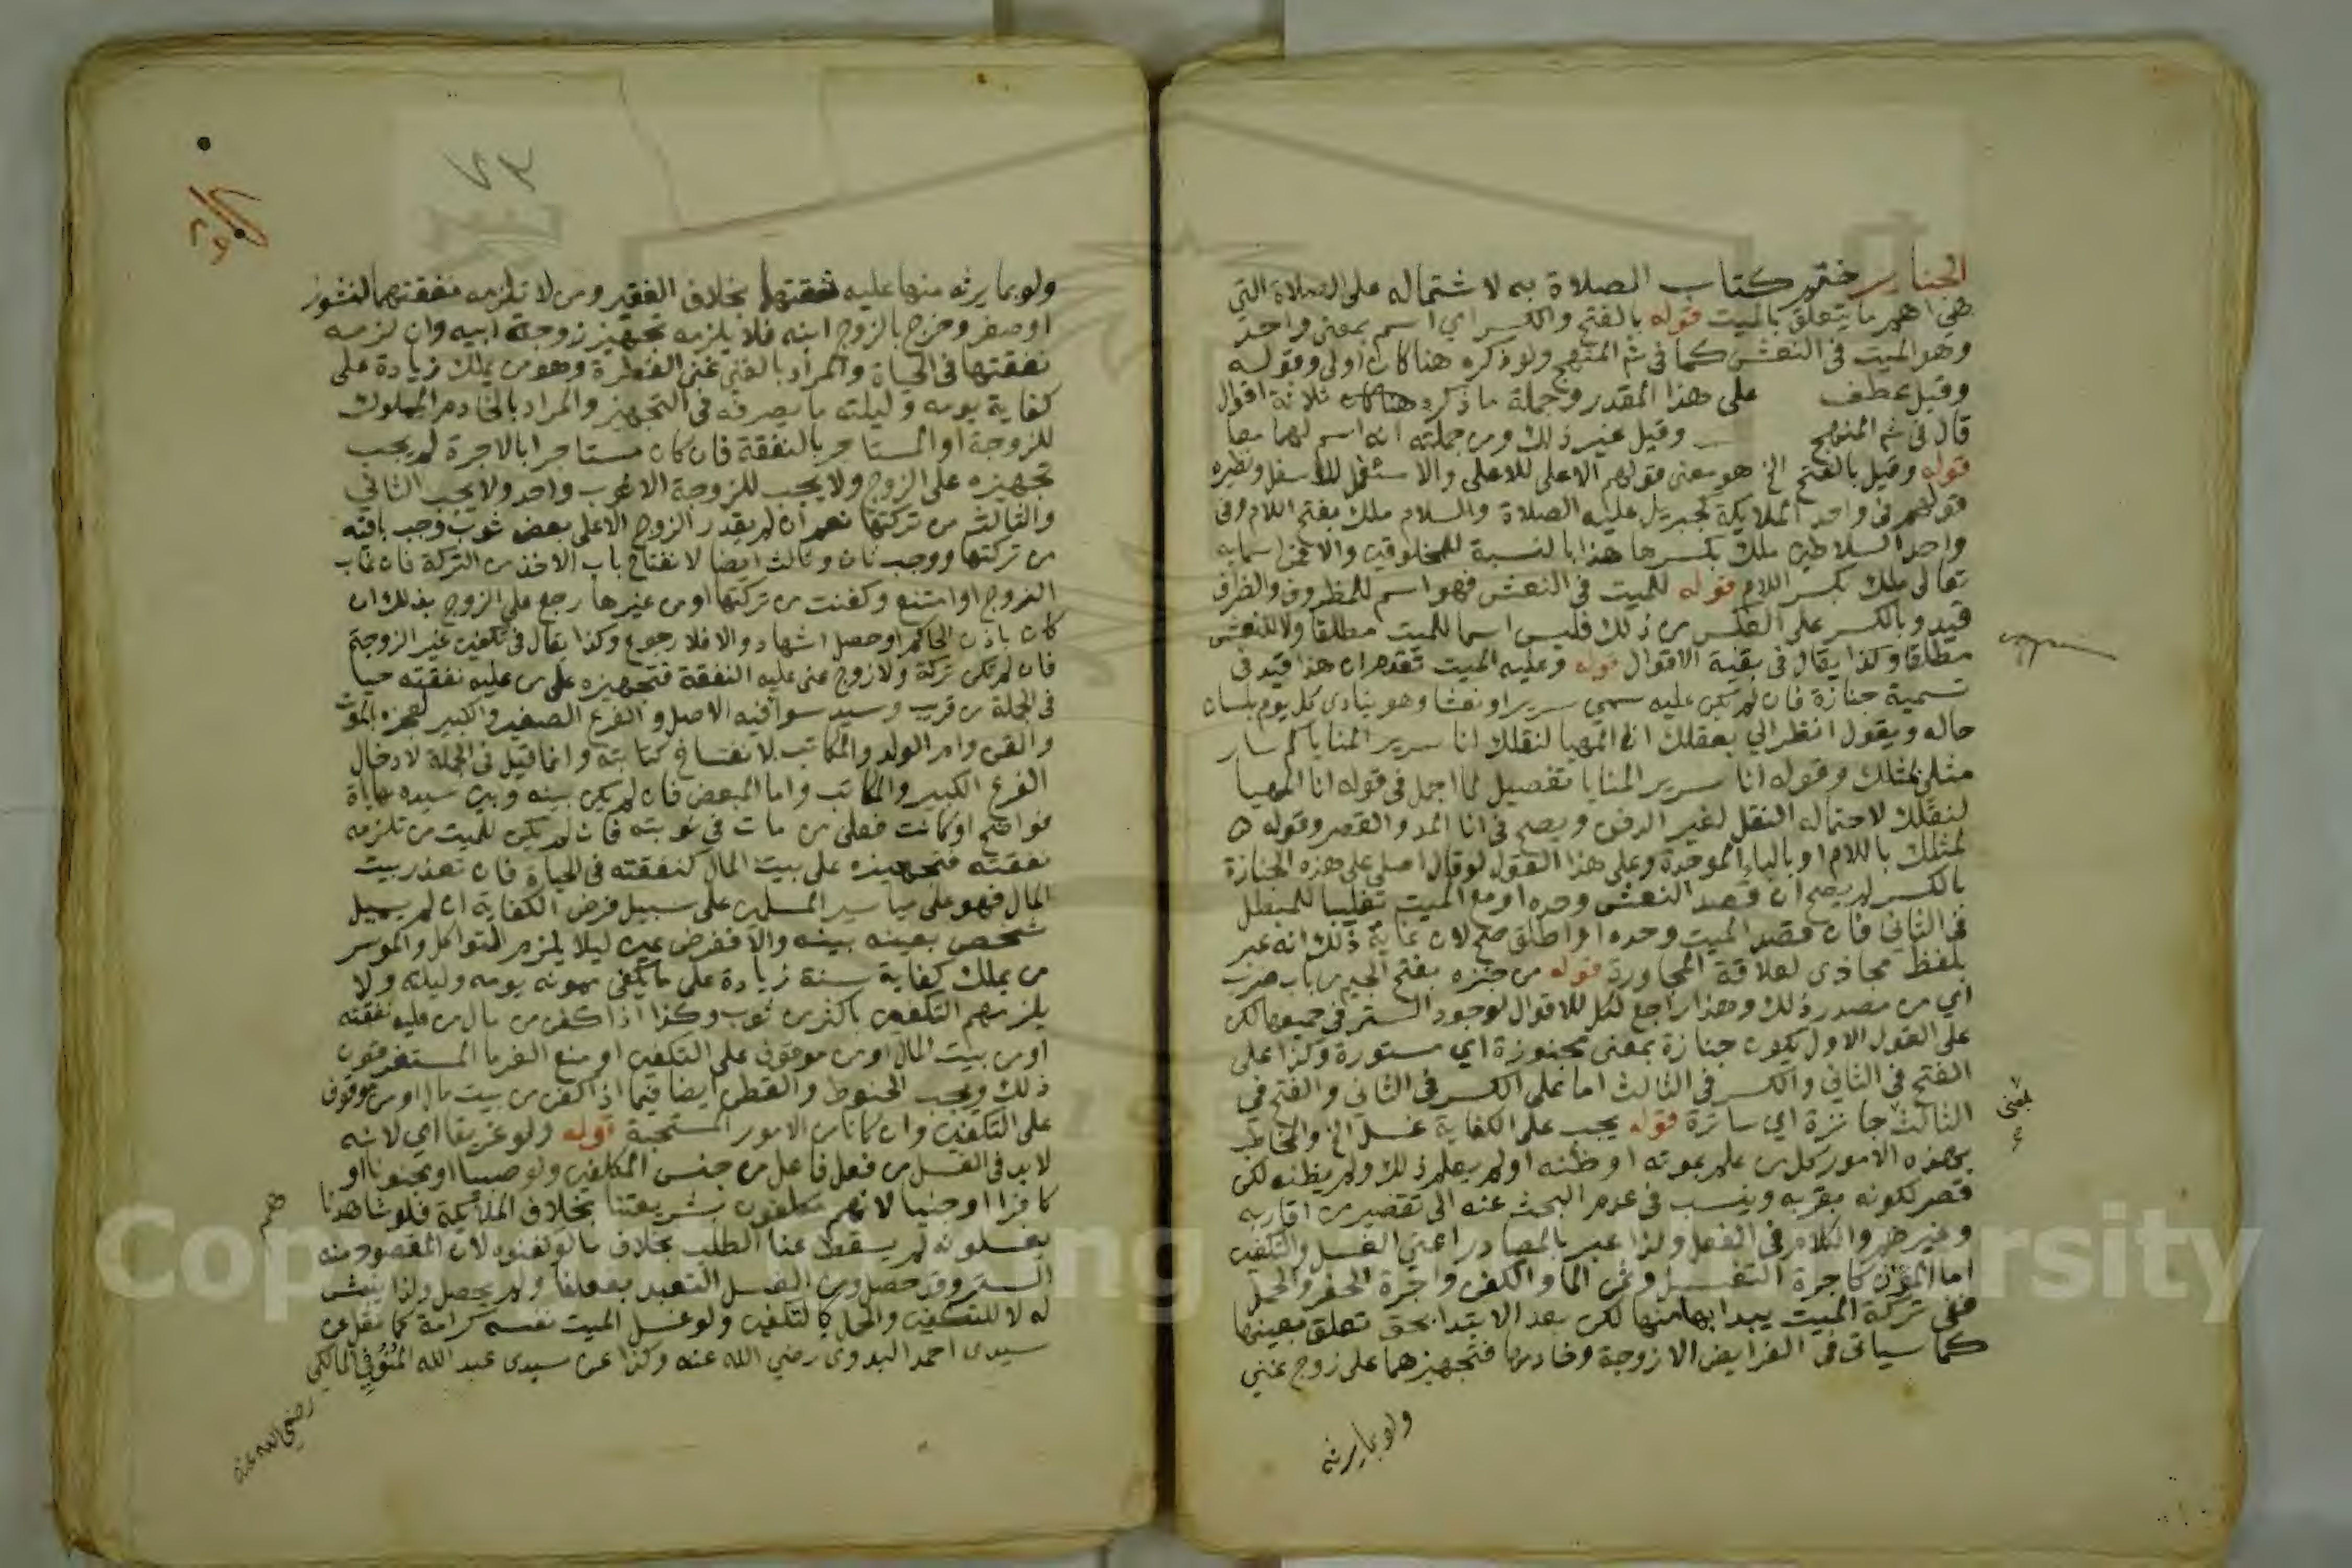 الجنايز ختم كتاب الصلاة به لاشتماله على الصلاة التي
هي اهم ما يتعلق بالميت قوله بالفتح والكسر اي اسم بمعنى واحد
وهو الميت في النعش كما في شم المنهج ولو ذكره هنا كان اولى وقوله
وقيل عطف على هذا المقدر وجملة ما ذكره هنا ثلاثة اقوال
قال في شم المنهج وقيل غير ذلك ومن جملته انه اسم لهما معا
قوله وقيل بالفتح الخ هو معنى قولهم الاعلى للاعلى والاسفل للاسفل ونظيره
قولهم في واحد الملايكة كجبريل عليه الصلاة والسلام ملك بفتح اللام وفي
واحد السلاطين ملك بكسرها هذا بالنسبة للمخلوقين والا فمن اسمايه
تعالى ملك بكسر اللام قوله للميت في النعش فهو اسم للمظروف والظرف
قيد وبالكسر على العكس من ذلك فليس اسما للميت مطلقا ولا للنعش
مطلقا وكذا يقال في بقية الاقوال قوله وعليه الميت تقدم ان هذا قيد في
تسمية جنازة فان لم يكن عليه سمي سريرا ونعشا وهو ينادي كل يوم بلسان
حاله ويقول انظر الي بعقلك انا المهيا لنقلك انا سرير المنايا كم سار
مثلي بمثلك وقوله انا سرير المنايا تفصيل لما اجمل في قوله انا المهيا
لنقلك لاحتماله النقل لغير الدفن ويصح في انا المد والقصر وقوله
لمثلك باللام او بالباء الموحدة وعلى هذا القول لو قال اصلي على هذه الجنازة
بالكسر لم يصح ان قصد النعش وحده او مع الميت تغليبا للمبطل
في الثاني فان قصد الميت وحده او اطلق صح لان غاية ذلك انه عبر
بلفظ مجازي لعلاقة المجاورة قوله من جنزه بفتح الجيم من باب ضرب
اي من مصدر ذلك وهذا راجع لكل للاقوال لوجود الستر في جميعها لكن
على القول الاول يكون جنازة بمعنى مجنوزة اي مستورة وكذا على
الفتح في الثاني والكسر في الثالث اما على الكسر في الثاني والفتح في
الثالث جانزة اي ساترة قوله يجب على الكفاية غسل الخ والمخاطب
بمعنى
بهذه الامور كل من علم بموته او ظنه او لم يعلم ذلك ولم يظنه لكن
قصر لكونه بقربه وينسب في عدم البحث عنه الى تقصير من اقاربه
وغيرهم والكلام في الفعل ولذا عبر بالمصادر اعني الغسل والتكفين
اما المؤن كاجرة التغسيل وثمن الما والكفن واجرة الحفر والحمل
ففي تركة الميت يبدا بها منها لكن بعد الابتدا بحق تعلق بعينها
كما سياتي في الفرايض الا زوجة وخادمها فتجهيزهما على زوج غني
ولو بما يرثه
٧٣
ولو بما يرثه منها عليه نفقتها بخلاف الفقير ومن لا تلزمه نفقتهما لنشوز
او صغر وخرج بالزوج ابنه فلا يلزمه تجهيز زوجة ابيه وان لزمه
نفقتها في الحياة والمراد بالغني غني الفطرة وهو من يملك زيادة على
كفاية يومه وليلته ما يصرفه في التجهيز والمراد بالخادم المملوك
للزوجة او المستاجر بالنفقة فان كان مستاجرا بالاجرة لم يجب
تجهيزه على الزوج ولا يجب للزوجة الا ثوب واحد ولا يجب الثاني
والثالث من تركتها نعم ان لم يقدر الزوج الا على بعض ثوب وجب باقيه
من تركتها ووجب ثان وثالث ايضا لانفتاح باب الاخذ من التركة فان غاب
الزوج او امتنع وكفنت من تركتها او من غيرها رجع على الزوج بذلك ان
كان باذن الحاكم او حصل اشهاد والا فلا رجوع وكذا يقال في تكفين غير الزوجة
فان لم تكن تركة ولا زوج غني عليه النفقة فتجهيزه على من عليه نفقته حيا
في الجملة من قريب وسيد سوا فيه الاصل والفرع الصغير والكبير لعجزه بالموت
والقن وام الولد والمكاتب لانفساخ كتابته وانما قيل في الجملة لادخال
الفرع الكبير والمكاتب واما المبعض فان لم يكن بينه وبين سيده مهاياة
فواضح او كانت فعلى من مات في نوبته فان لم يكن للميت من تلزمه
نفقته فتجهيزه على بيت المال كنفقته في الحياة فان تعذر بيت
المال فهو على مياسير المسلمين على سبيل فرض الكفاية ان لم يسيل
شخص بعينه بينه والا ففرض عين ليلا يلزم التواكل والموسر
من يملك كفاية سنة زيادة على ما يكفي ممونه يومه وليلته ولا
يلزمهم التكفين باكثر من ثوب وكذا اذا كفن من مال من عليه نفقته
او من بيت المال او من موقوف على التكفين او منع الغرما المستغرقون
ذلك ويجب الحنوط والقطن ايضا فيما اذا كفن من بيت مال او من موقوف
على التكفين وان كانا من الامور المستحبة قوله ولو غريقا اي لانه
لا بد في الغسل من فعل فاعل من جنس المكلفين ولو صبيا او مجنونا او
كافرا او جنيا لانهم مكلفون بشريعتنا بخلاف الملايكة فلو شاهدنا
هم
يغسلونه لم يسقط عنا الطلب بخلاف ما لو كفنوه لان المقصود منه
الستر وقد حصل ومن الغسل التعبد بفعلنا ولم يحصل ولذا ينبش
له لا للتكفين والحمل كالتكفين ولو غسل الميت نفسه كرامة كما نقل عن
سيدي احمد البدوي رضي الله عنه وكذا عن سيدي عبد الله المنوفي المالكي
رضي الله عنه